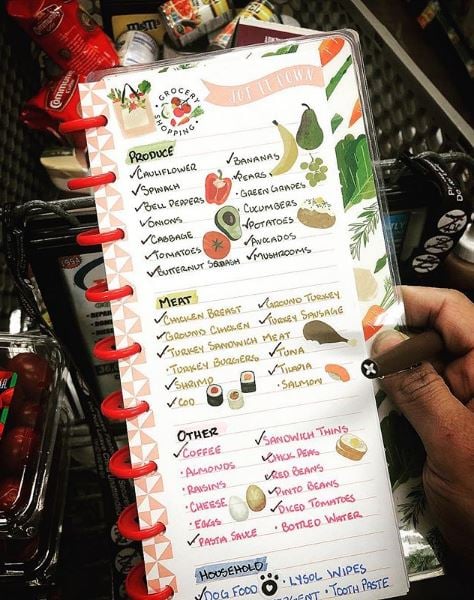 GROCERY SHOPPING
JOT IT DOWN
PRODUCE
CAULIFLOWER
SPINACH
BELL PEPPERS
ONIONS
CABBAGE
TOMATOES
BUTTERNUT SQUASH
BANANAS
PEARS
GREEN GRAPES
CUCUMBERS
POTATOES
AVOCADOS
MUSHROOMS
MEAT
CHICKEN BREAST
GROUND CHICKEN
TURKEY SANDWICH MEAT
TURKEY BURGERS
SHRIMP
COD
GROUND TURKEY
TURKEY SAUSAGE
TUNA
TILAPIA
SALMON
OTHER
COFFEE
ALMONDS
RAISINS
CHEESE
EGGS
PASTA SAUCE
SANDWICH THINS
CHICK PEAS
RED BEANS
PINTO BEANS
DICED TOMATOES
BOTTLED WATER
HOUSEHOLD
DOG FOOD
LYSOL WIPES
TOOTH PASTE